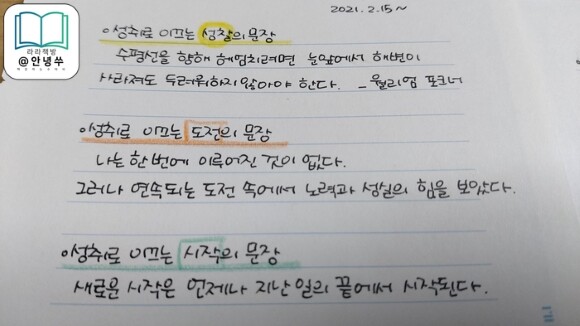 2021. 2.15~
라라책방
@안녕쑤
성취로 이끄는 성찰의 문장
수평선을 향해 헤엄치려면 눈앞에서 해변이
사라져도 두려워하지 않아야 한다. - 윌리엄 포크너
성취로 이끄는 도전의 문장
나는 한 번에 이루어진 것이 없다.
그러나 연속되는 도전 속에서 노력과 성실의 힘을 보았다.
성취로 이끄는 시작의 문장
새로운 시작은 언제나 지난 일의 끝에서 시작된다.